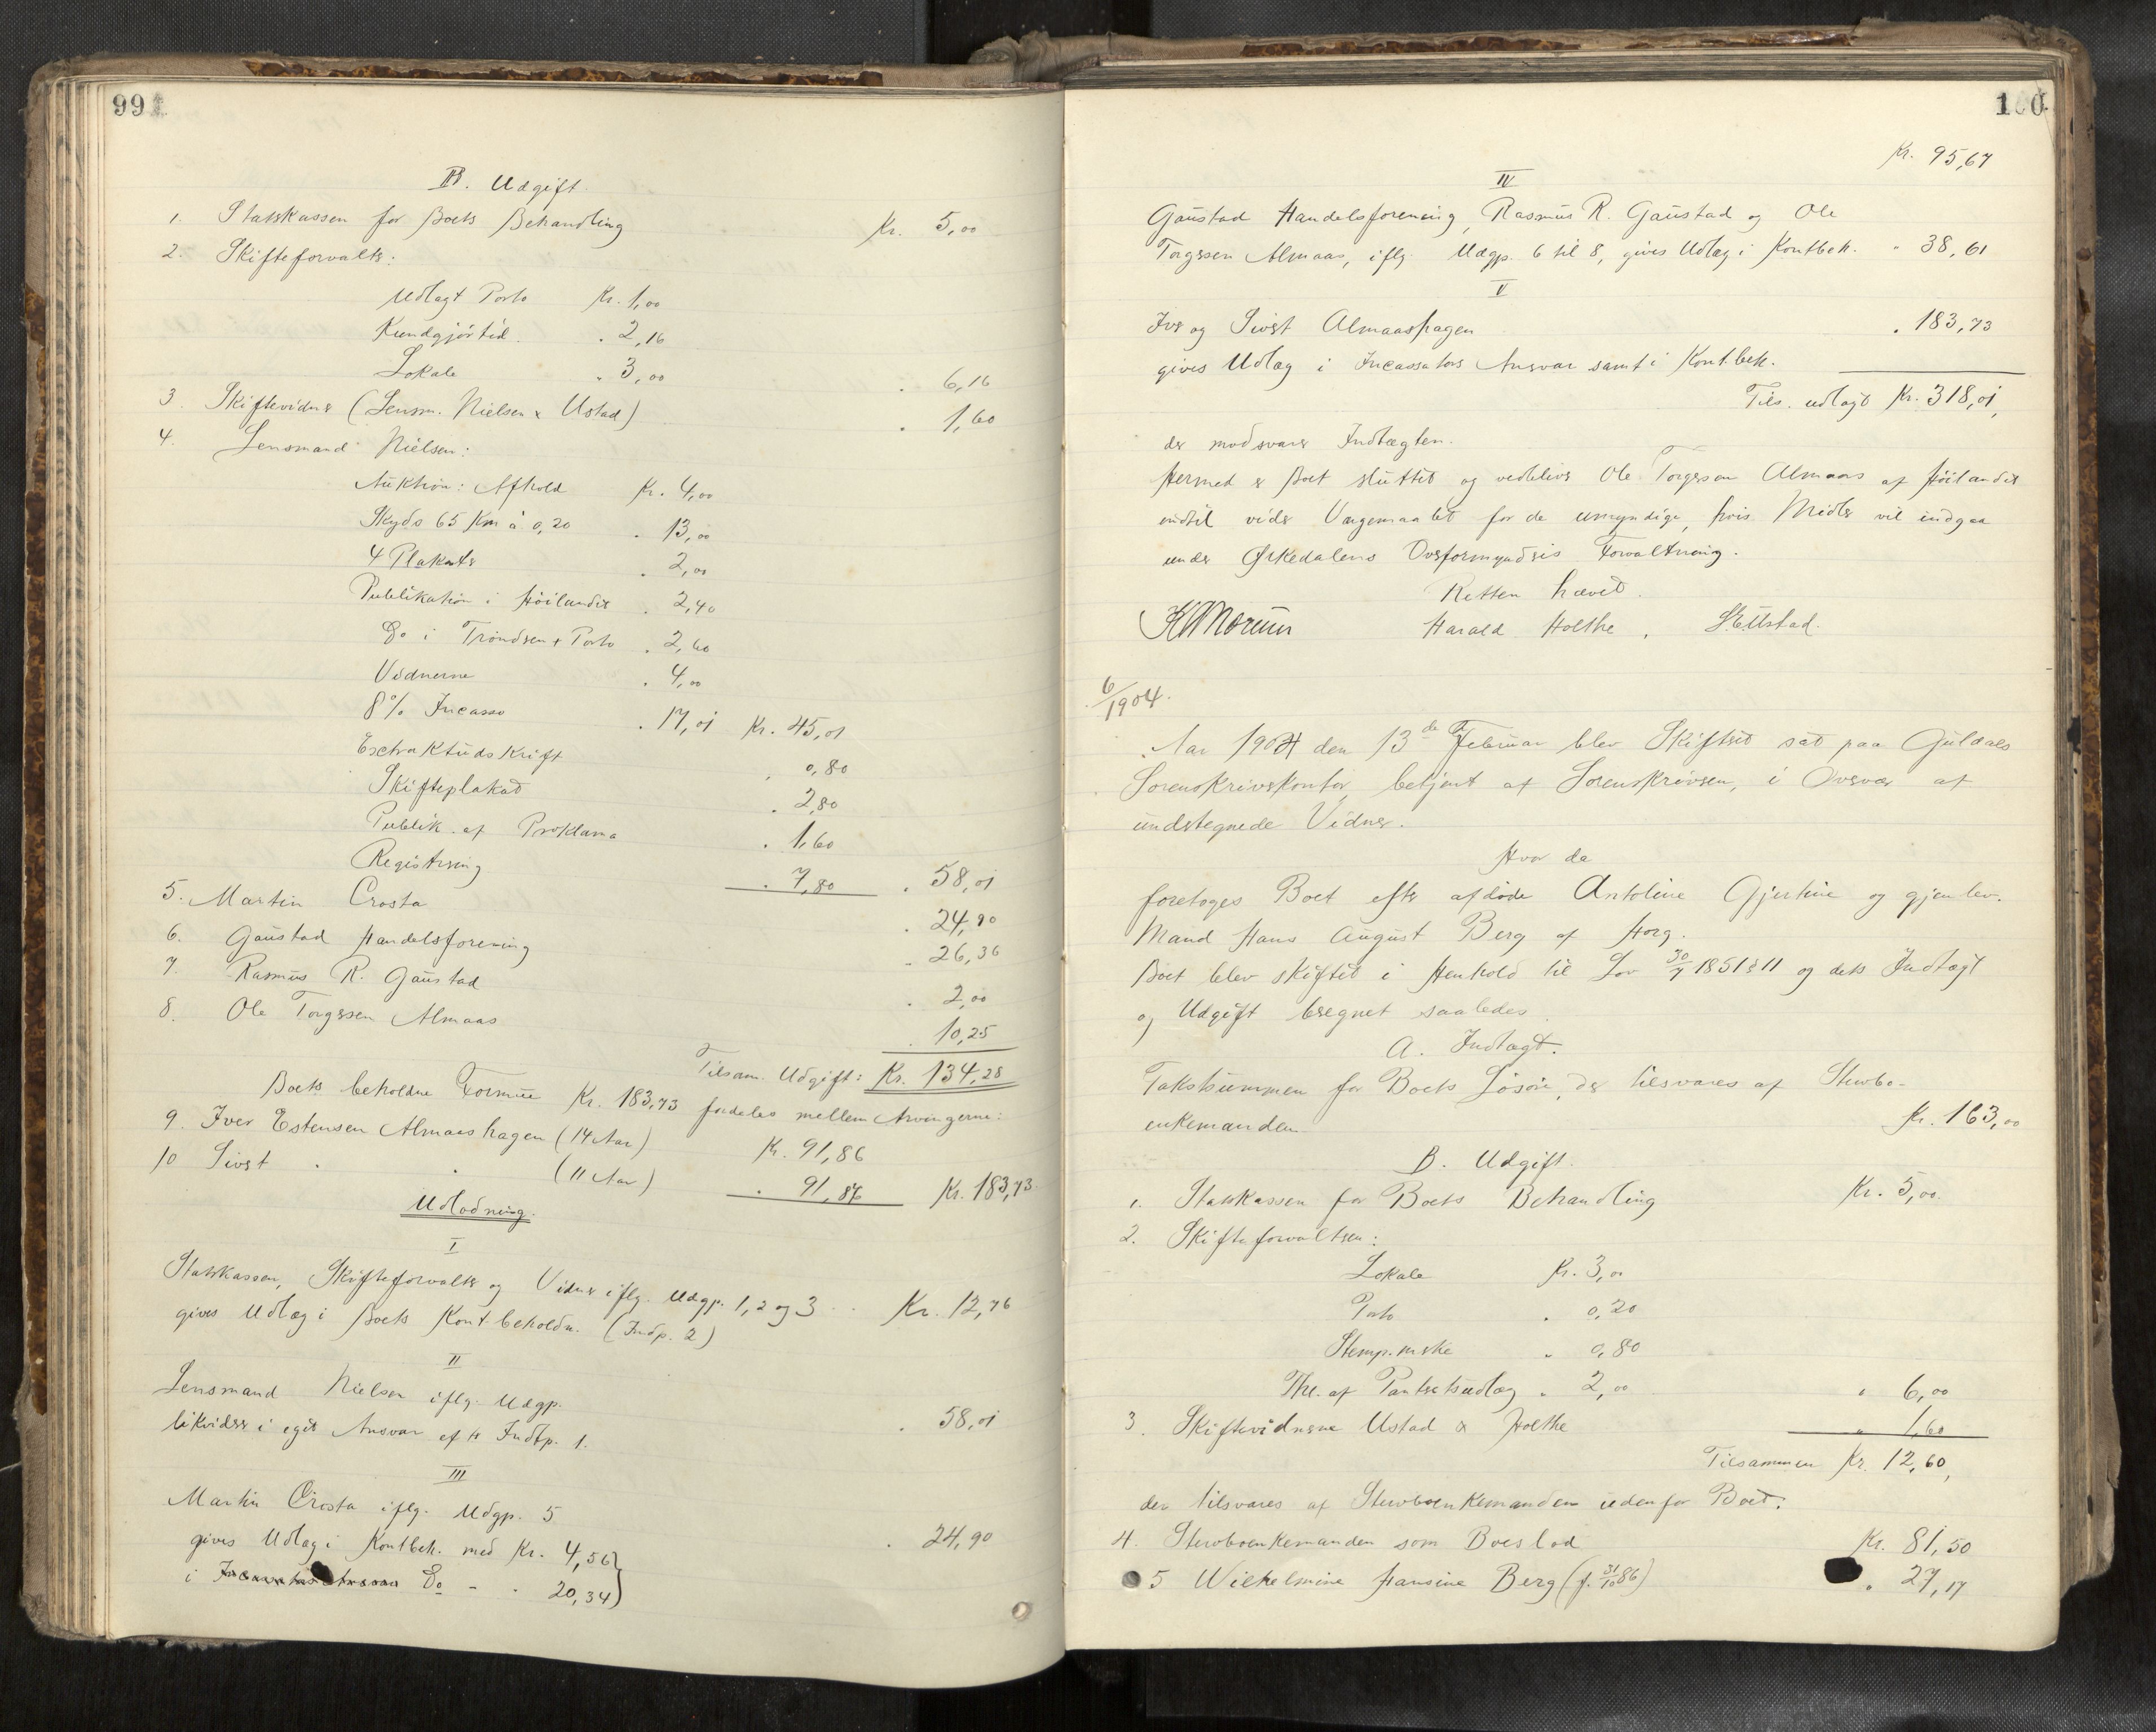 99
B. Udgift.
1. Statskassen for Boets Behandling Kr. 5,00
2. Skifteforvalts:
Udlagt Porto Kr. 1,00
Kundgjörtid. " 2,16
Lokale " 3,00 " 6,16
3 Skiftevidner (Lensm. Nielsen & Ustad) " 1,60
4. Lensmand Nielsen:
Auktion: Afhold Kr. 4,00
Skyds 65 Km à 0,20 " 13,00
4 Plakater " 2,00
Publikation i Höilandet " 2,40
Do i Trondsen + Porto " 2,60
Vidnerne " 4,00
8% Incasso " 17,01 Kr. 45,01
Extraktudskrift " 0,80
Skifteplakat " 2,80
Publik. af Proklama " 1,60
Registrering " 7,80 " 58,01
5. Martin Crosta " 24,90
6. Gaustad Handelsforening " 26,36
7. Rasmus R. Gaustad " 2,00
8. Ole Torgersen Almaas " 10,25
Tilsam. Udgift: Kr. 134,28
Boets beholdne Formue Kr. 183,73 fordeles mellem Arvingerne:
9. Iver Estensen Almaashagen (14 Aar) Kr. 91,86
10 Sivert " " (11 Aar) " 91,86 Kr. 183,73
Udlodning.
I
Statskassen, Skifteforvalter og Vidner iflg. Udgp. 1, 2 og 3 Kr. 12,76
gives Udlæg i Boets Kontbeholdn. (Indp. 2)
II
Lensmand Nielsen iflg. Udgp.
likviderer i eget Ansvar eft Indtp. 1. " 58,01
III
Martin Crosta iflg. Udgp. 5
gives Udlæg i Kontbeh. med Kr. 4,56} " 24,90
i Do - " 20,34)
100
Kr. 95,67
IV
Gaustad Handelsforening, Rasmus R. Gaustad og Ole
Torgersen Almaas, iflg. Udgp. 6 til 8, gives Udlæg i Kontbeh. " 38,61
V
Iver og Sivert Almaashagen " 183,73
gives Udlæg i Incassators Ansvar samt i Kontbeh.
Tils. udlagt Kr. 318,01,
der modsvarer Indtægten.
Hermed er Boet sluttet og vedbliver Ole Torgersen Almaas af Höilandet
indtil videre Værgemaalet for de umyndige, hvis Midler vil indgaa
under Ørkedalens Overformynderis Forvaltning.
Retten hævet.
Harald Holthe, Ustad.
6/1904.
Aar 1904 den 13de Februar blev Skifteret sat paa Guldals
Sorenskriverkontor, betjent af Sorenskriveren, i Overvær af
undertegnede Vidner.
Hvor da
foretoges Boet efter afdöde Antoline Gjertine og gjenlev.
Mand Hans August Berg af Horg.
Boet blev skiftet i Henhold til Lov 30/7 1851 § 11 og dets Indtægt
og Udgift beregnet saaledes.
A. Indtægt.
Takstsummen for Boets Lösöre, der tilsvares af Sterbo-
enkemanden Kr. 163,00
B. Udgift.
1. Statskassen for Boets Behandling Kr. 5,00
2. Skifteforvalteren:
Lokale Kr. 3,00
Porto " 0,20
Stemp.mrke " 0,80
Thl. af Panteretsudlæg " 2,00 " 6,00
3. Skiftevidnerne Ustad & Holthe " 1,60
Tilsammen Kr. 12,60,
der tilsvares af Sterboenkemanden udenfor Boet.
4. Sterboenkemanden som Boeslod Kr. 81,50
5 Wilhelmine Hansine Berg (f. 31/10 86) " 27,17